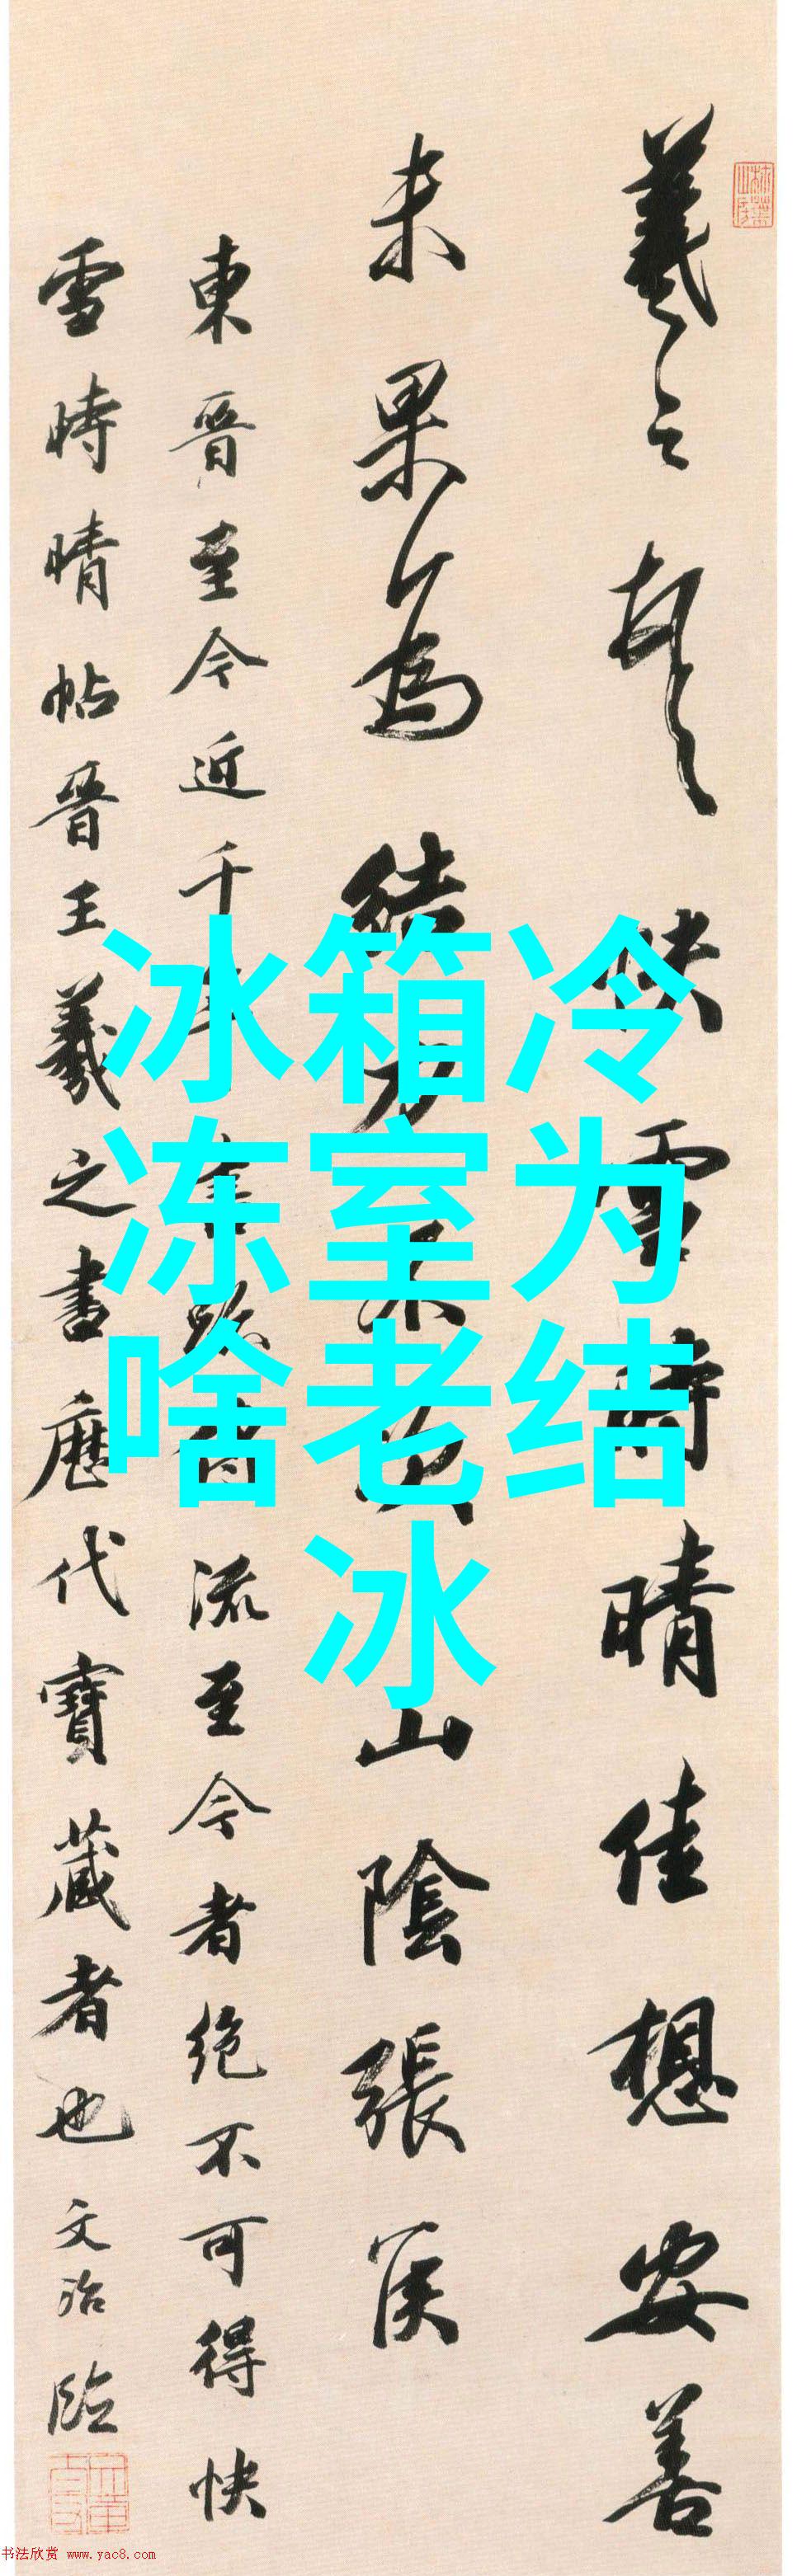 羲之頓首快雪時晴佳想安善
未果為結力不次山陰張侯
東晉至今近千年書跡傳流至今者絶不可得快
雪時晴帖晉王羲之書歷代寶藏者也文治臨
冰箱冷
冻室为
啥老结
冰
书法欣赏 www.yac8.com